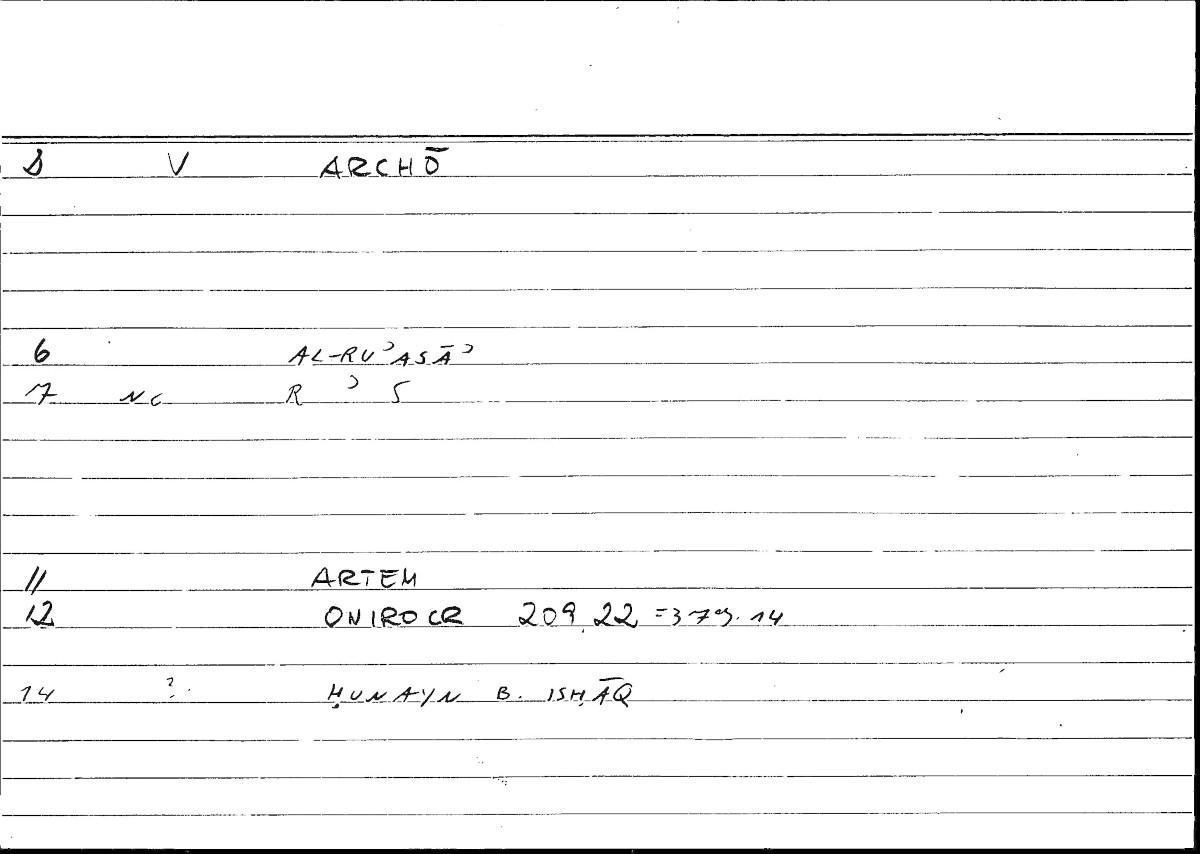 S V ARCHŌ
6 AL-RUʾASĀʾ
7 NC R ʾ S
11 ARTEM
12 ONIROCR 209,22 =379.14
14 ? ḤUNAYN B. ISḤĀQ